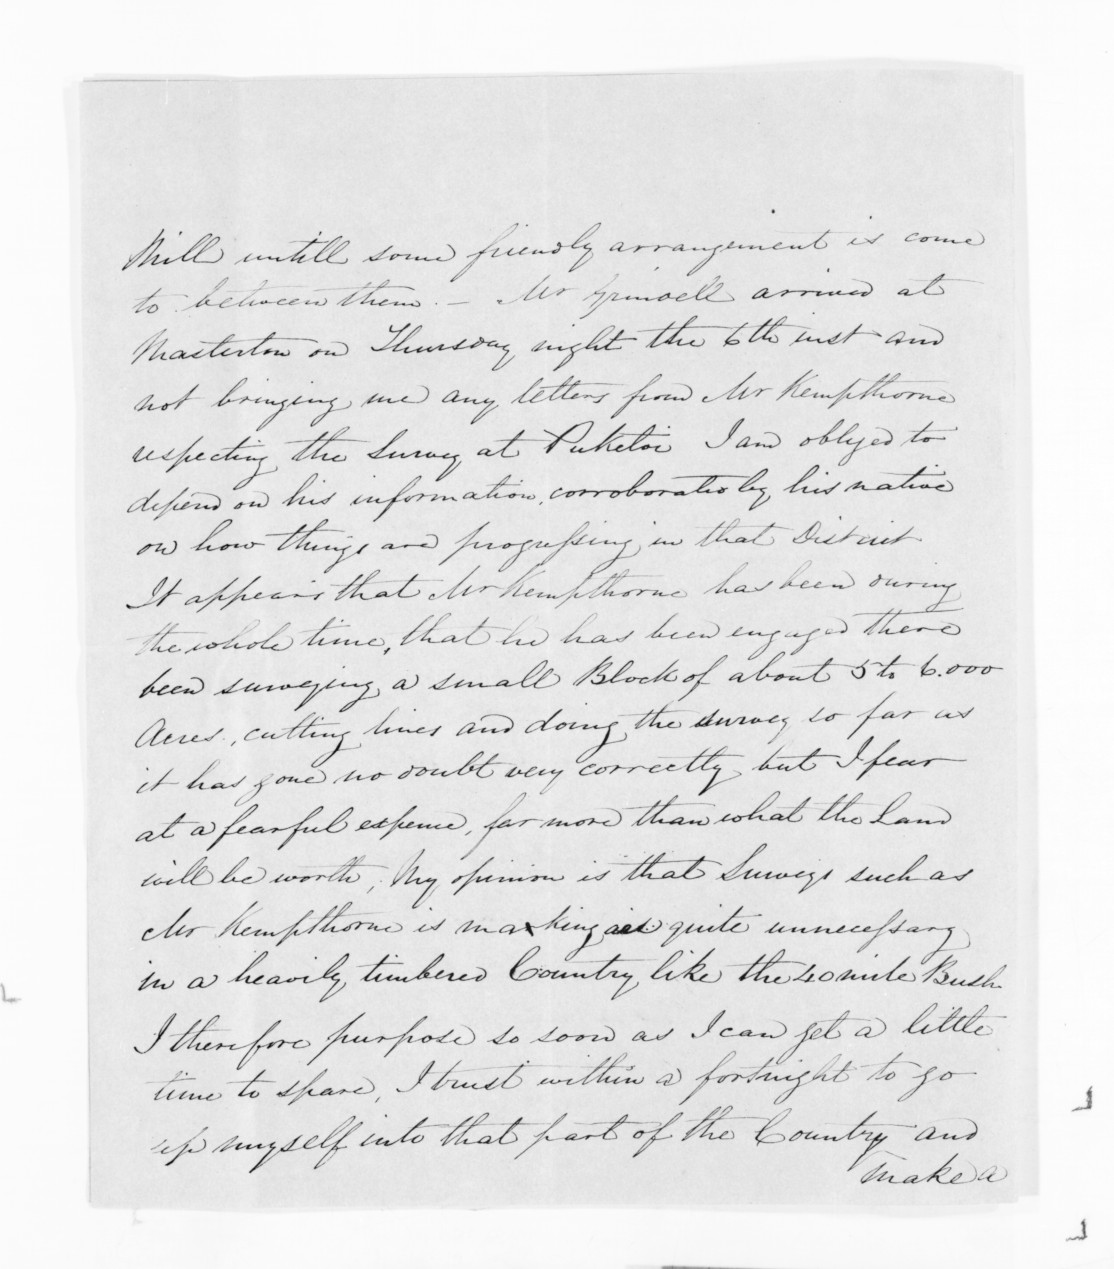 Mill untill some friendly arrangement is come
to between them. — Mr Grindell arrived at
Masterton on Thursday night the 6th inst and
not bringing me any letters from Mr Kempthorne
respecting the Survey at Puketoi I am obliged to
depend on his information, corroborated by his native
on how things are progressing in that District
It appears that Mr Kempthorne has been during
the whole time, that he has been engaged there
been surveying a small Block of about 5 to 6.000
Acres., cutting lines and doing the survey so far as
it has gone no doubt very correctly but I fear
at a fearful expense, far more than what the Land
will be worth, My opinion is that Surveys such as
Mr Kempthorne is making are quite unnecessary
in a heavily timbered Country like the 40 mile Bush
I therefore purpose so soon as I can get a little
time to spare, I trust within a fortnight to go
up myself into that part of the Country and
make a